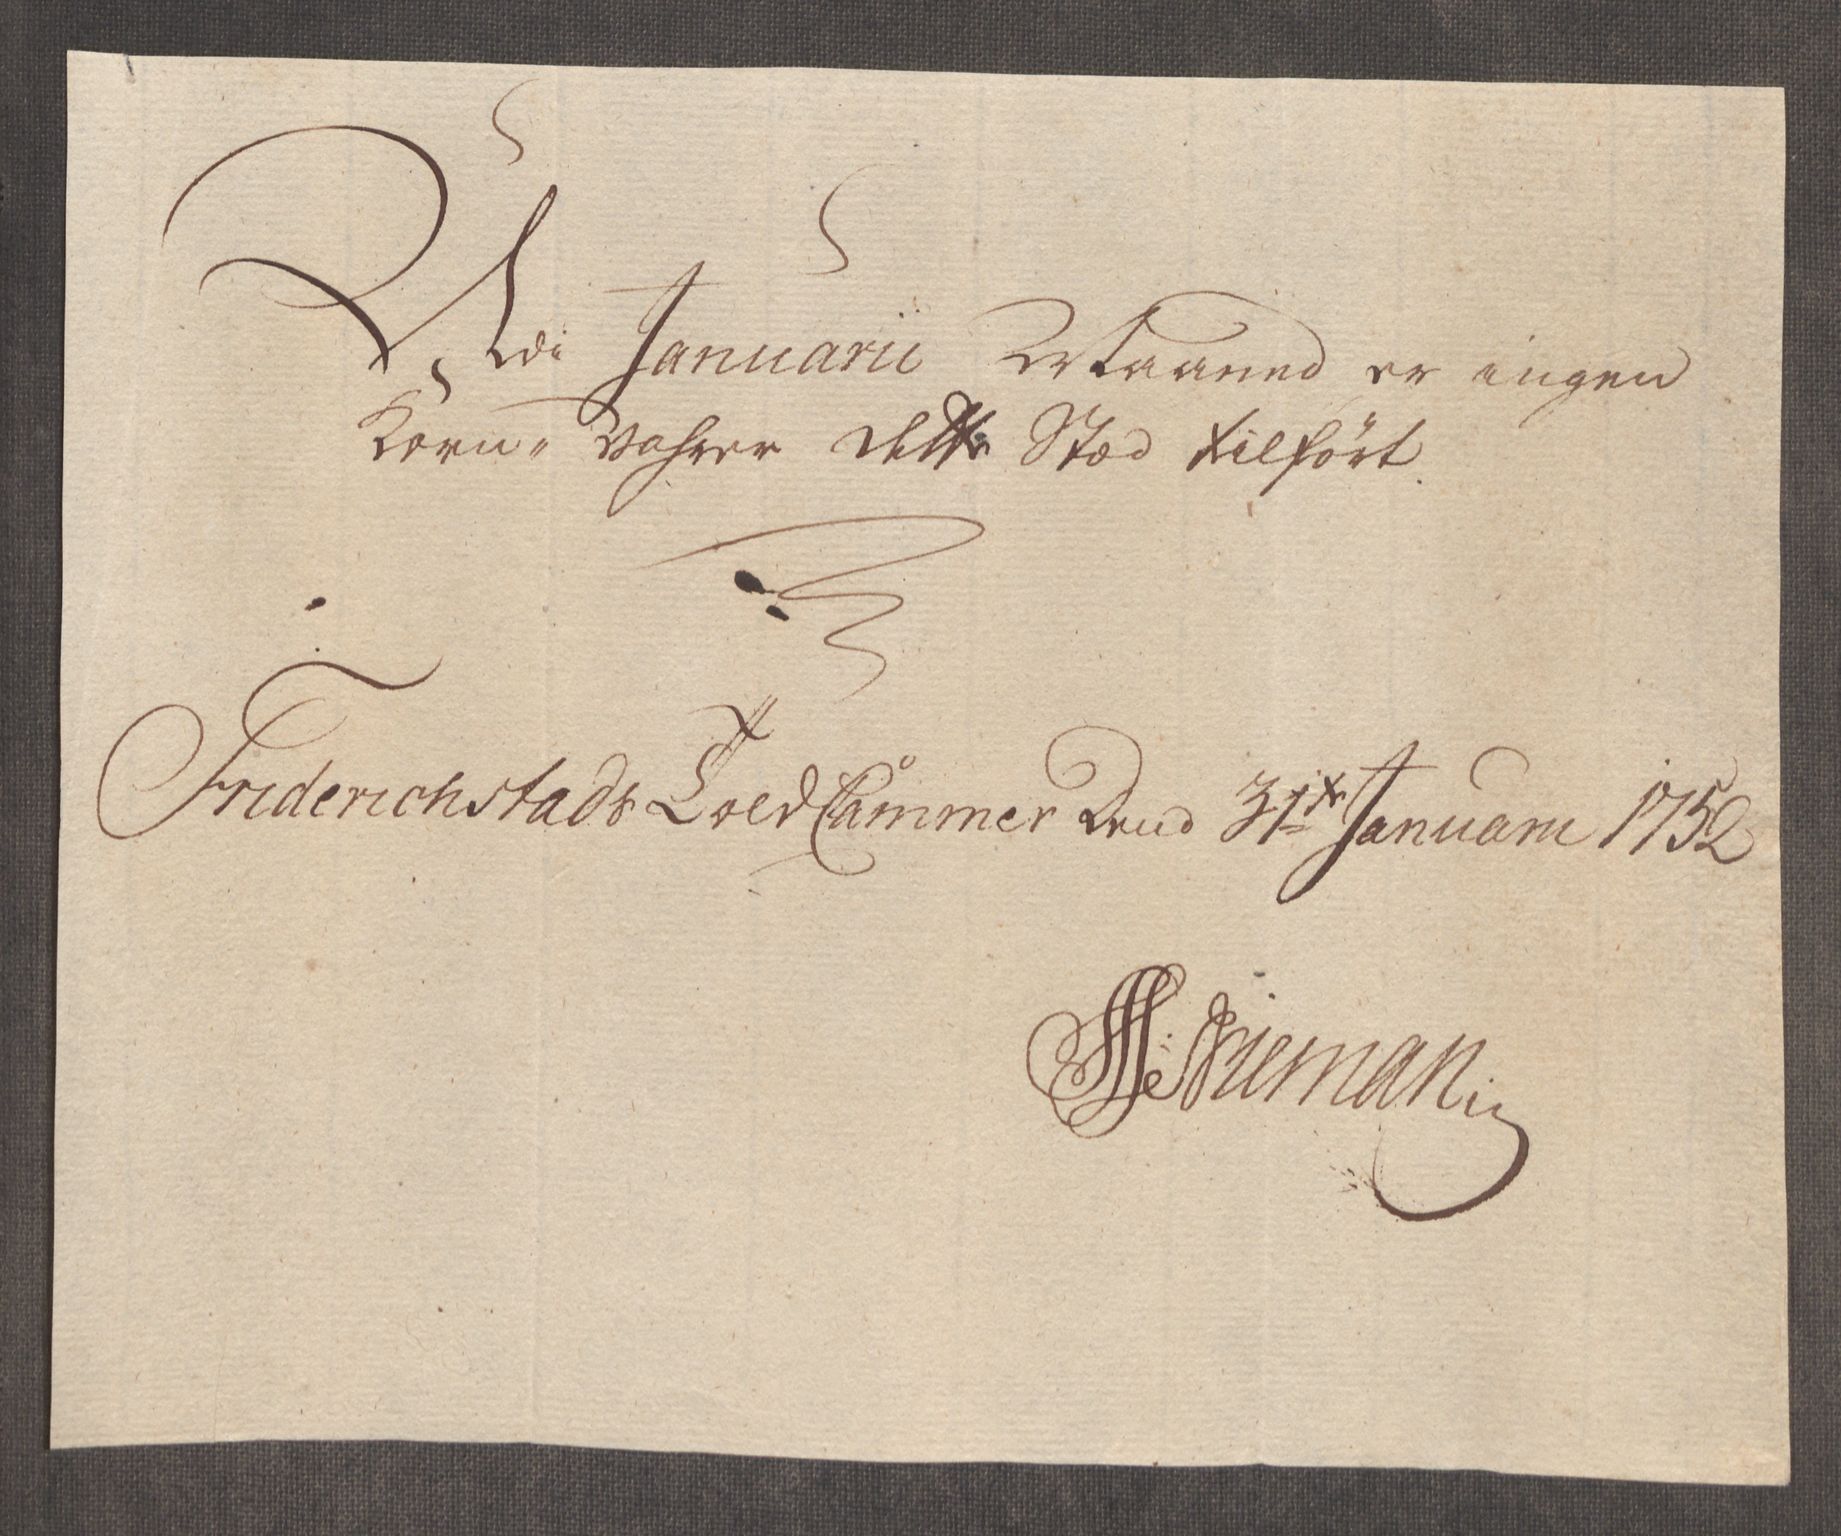 Udi Januarii Maaned er ingen
Korn- Vahrer dette Stæd tilført.
Friderichstads Told Cammer Dend 31te Januarii 1752
Nieman